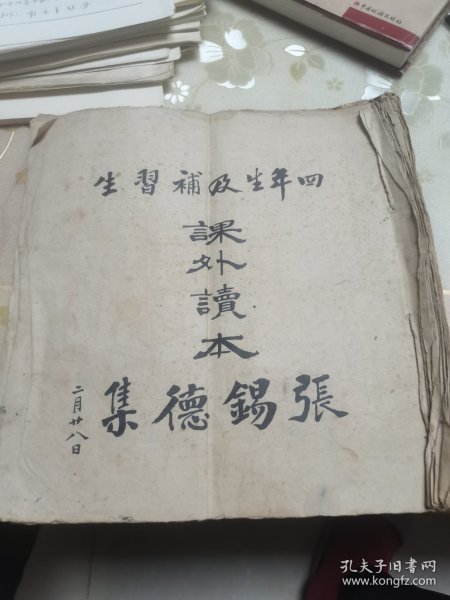 四年生及補習生
課外讀本
張錫德集
二月廿八日
孔夫子旧书网
www.kongfz.com